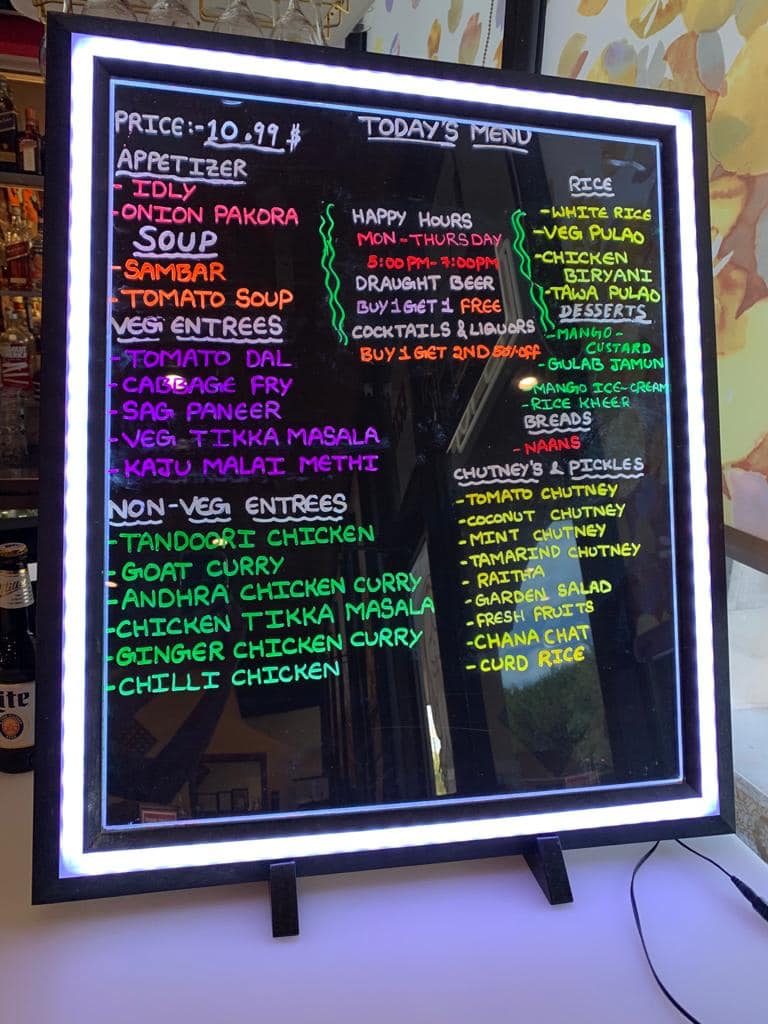 PRICE:- 10.99 $
TODAY'S MENU
APPETIZER
- IDLY
- ONION PAKORA
SOUP
- SAMBAR
- TOMATO SOUP
VEG ENTREES
- TOMATO DAL
- CABBAGE FRY
- SAG PANEER
- VEG TIKKA MASALA
- KAJU MALAI METHI
NON-VEG ENTREES
- TANDOORI CHICKEN
- GOAT CURRY
- ANDHRA CHICKEN CURRY
- CHICKEN TIKKA MASALA
- GINGER CHICKEN CURRY
- CHILLI CHICKEN
HAPPY HOURS
MON - THURSDAY
5:00PM - 7:00PM
DRAUGHT BEER
BUY 1 GET 1 FREE
COCKTAILS & LIQUORS
BUY 1 GET 2ND 50% OFF
RICE
- WHITE RICE
- VEG PULAO
- CHICKEN
BIRYANI
- TAWA PULAO
DESSERTS
- MANGO -
CUSTARD
- GULAB JAMUN
- MANGO ICE-CREAM
- RICE KHEER
BREADS
- NAANS
CHUTNEY'S & PICKLES
- TOMATO CHUTNEY
- COCONUT CHUTNEY
- MINT CHUTNEY
- TAMARIND CHUTNEY
- RAITHA
- GARDEN SALAD
- FRESH FRUITS
- CHANA CHAT
- CURD RICE